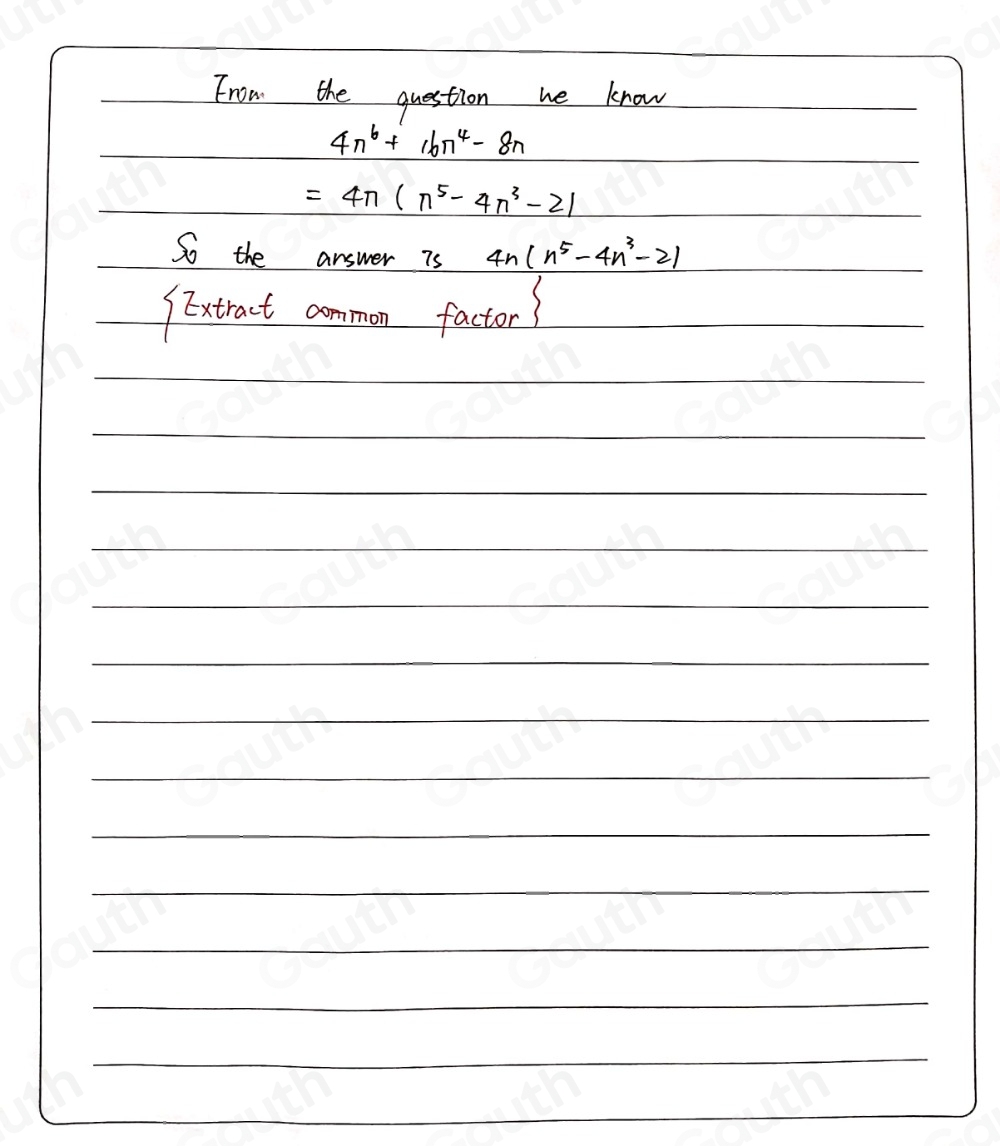 From the question we know
4n⁶ + 16n⁴ - 8n
= 4n ( n⁵ - 4n³ - 2)
So the answer is 4n ( n⁵ - 4n³ - 2)
{Extract common factor}